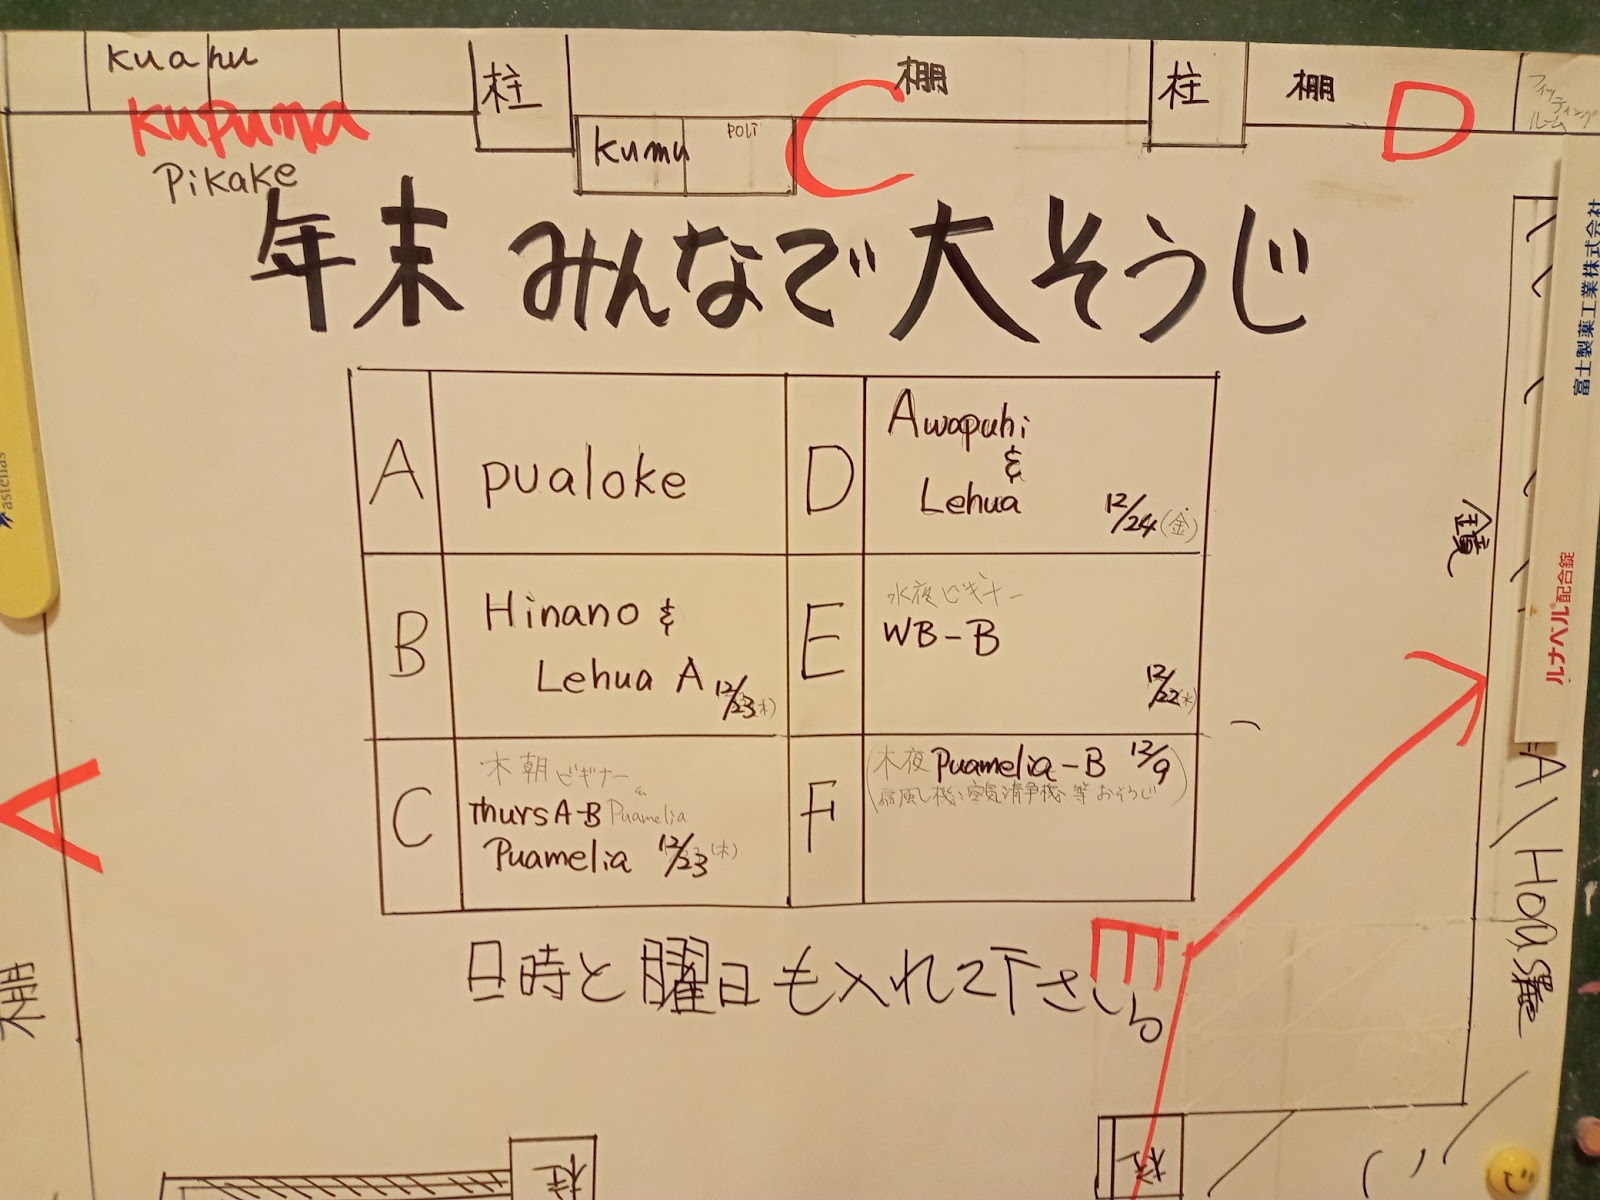 kuahu
柱
棚
柱
棚
フィッティング
ルーム
Kupuma
Pikake
kumu
POLI
C
D
年末 みんなで 大そうじ
A
pualoke
D
Awapuhi
&
Lehua
12/24(金)
B
Hinano &
Lehua A
12/23(木)
E
水夜ビギナー
WB-B
12/22(水)
C
木朝ビギナー
&
ThursA-B Puamelia
Puamelia 12/23(木)
F
(木夜 Puamelia-B 12/9
扇風機、空気清浄機、等おそうじ)
日時と曜日も入れて下さい。
A
棚
E
鏡
柱
柱
富士製薬工業株式会社
ルナベル®配合錠
astellas